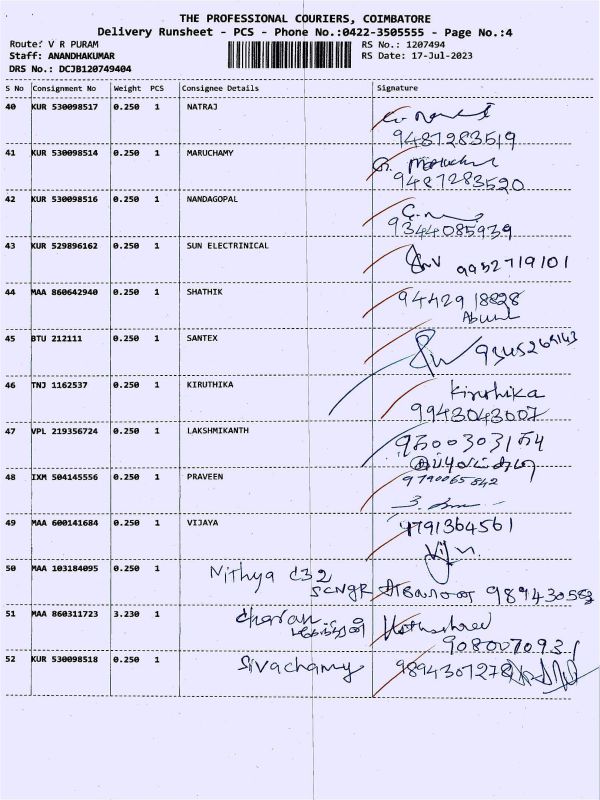 THE PROFESSIONAL COURIERS, COIMBATORE
Delivery Runsheet - PCS - Phone No.:0422-3505555 - Page No.:4
Route: V R PURAM RS No.: 1207494
Staff: ANANDHAKUMAR RS Date: 17-Jul-2023
DRS No.: DCJB120749404
S No Consignment No Weight PCS Consignee Details Signature
40 KUR 530098517 0.250 1 NATRAJ
9487283519
41 KUR 530098514 0.250 1 MARUCHAMY
9487283520
42 KUR 530098516 0.250 1 NANDAGOPAL
9344085939
43 KUR 529896162 0.250 1 SUN ELECTRINICAL 9952719101
44 MAA 860642940 0.250 1 SHATHIK 9442918828
45 BTU 212111 0.250 1 SANTEX
46 TNJ 1162537 0.250 1 KIRUTHIKA Kiruthika
9943043007
47 VPL 219356724 0.250 1 LAKSHMIKANTH
48 IXM 504145556 0.250 1 PRAVEEN 9790065842
49 MAA 600141684 0.250 1 VIJAYA 4791364561
50 MAA 103184095 0.250 1 Nithya C32
SCNGR 989430583
51 MAA 860311723 3.230 1 charan
9080070931
52 KUR 530098518 0.250 1 Sivachamy 9894307278